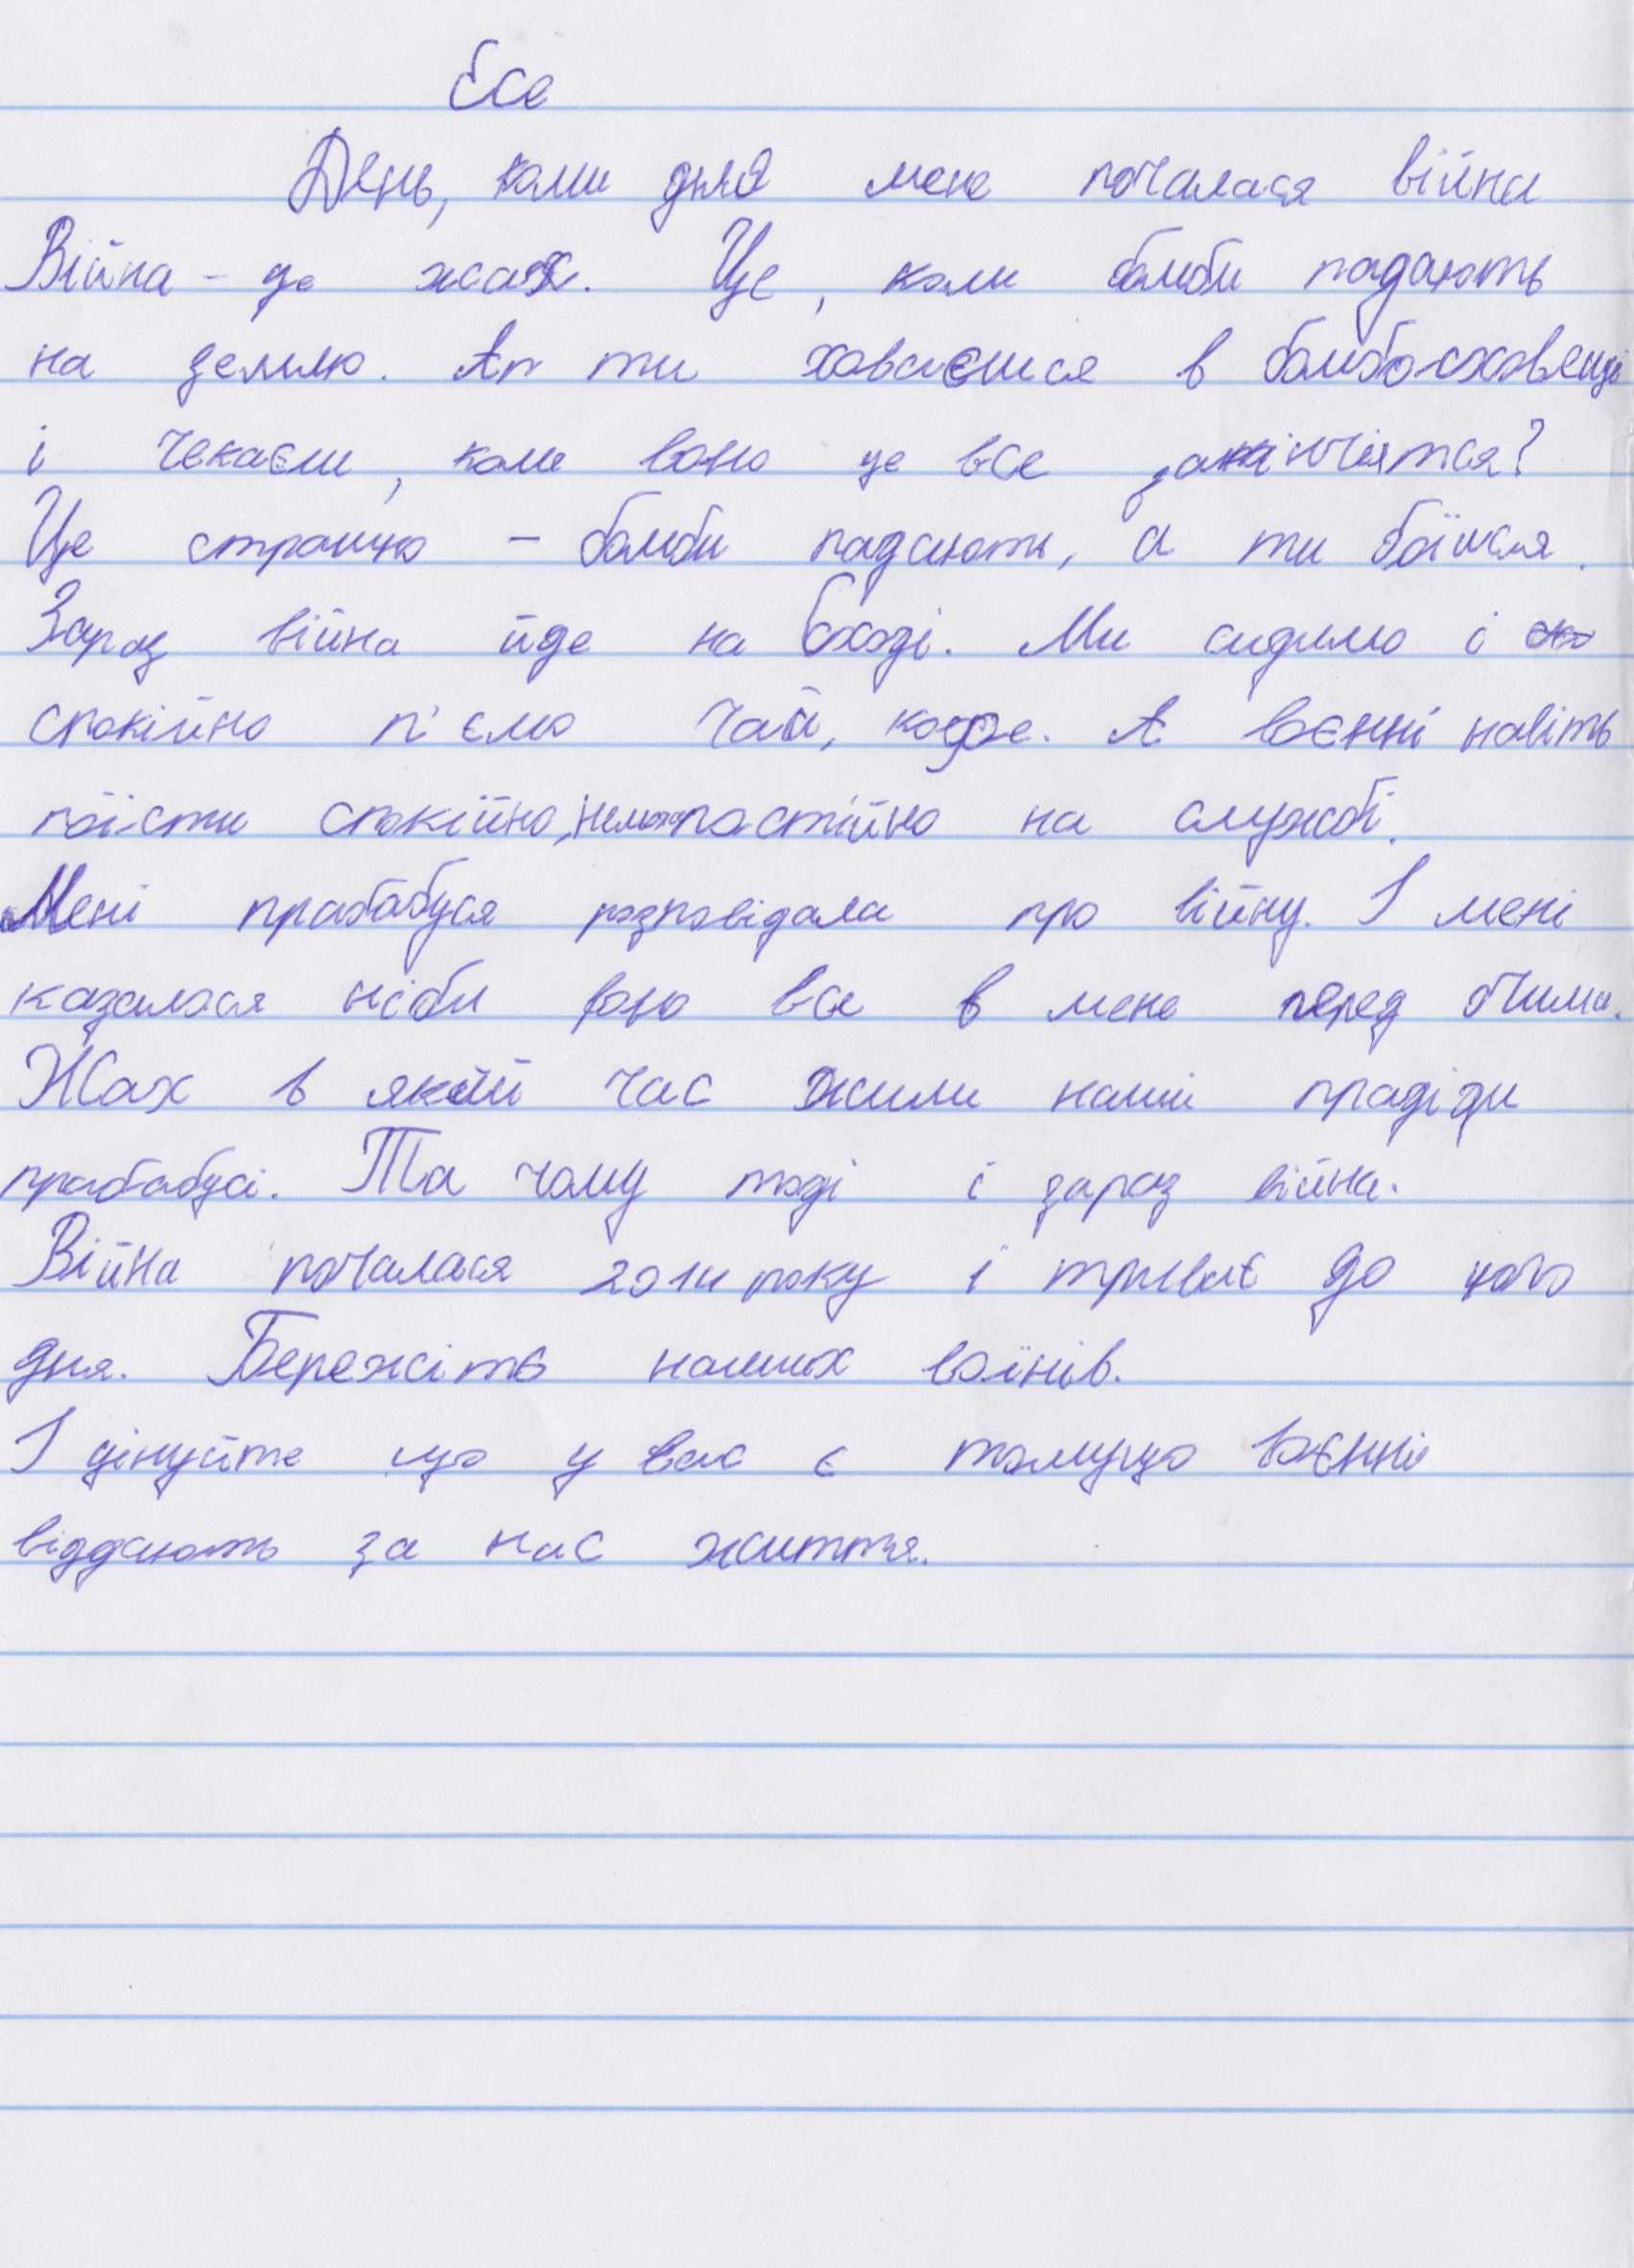 Есе
День, коли для мене почалася війна
Війна - це жах. Це, коли бомби падають
на землю. А ти ховаєшся в бомбосховищі
і чекаєш, коли воно це все закінчіться?
Це страшно - бомби падають, а ти боїшся.
Зараз війна йде на Сході. Ми сидимо і
спокійно п'ємо чай, кофе. А воєнні навіть
поїсти спокійно, неможе постійно на службі.
Мені прабабуся розповідала про війну. І мені
казалося ніби воно все в мене перед очима.
Жах в який час жили наші прадіди
прабабусі. Та чому тоді і зараз війна.
Війна почалася 2014 року і триває до цього
дня. Бережіть наших воїнів.
І цінуйте що у вас є томущо воєнні
віддають за нас життя.